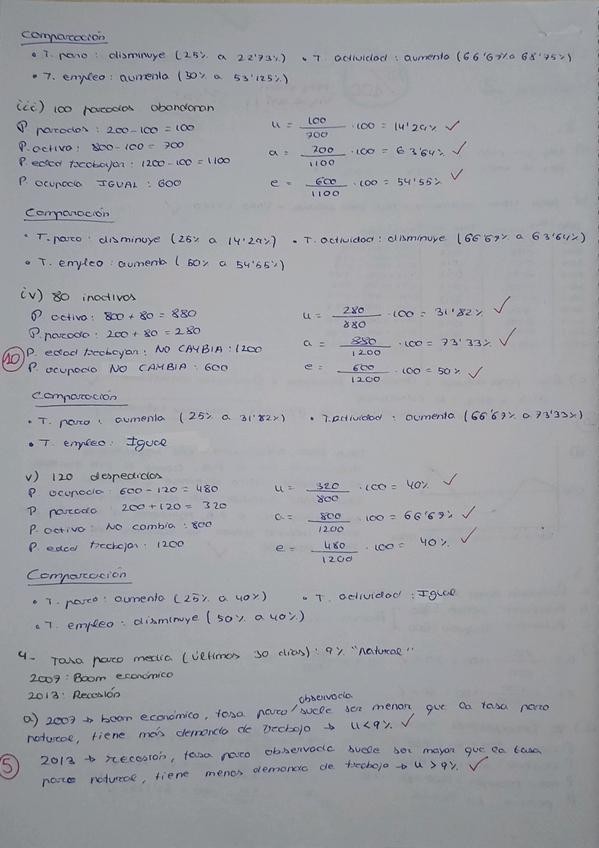 Comparación
• T. paro : disminuye (25% a 22'73%) • T. actividad : aumenta (66'67% a 68'75%)
• T. empleo : aumenta (50% a 53'125%)
iii) 100 parados abandonan
P parados : 200-100 = 100 u = 100/700 · 100 = 14'29% ✓
P. activa : 800-100 = 700 a = 700/1100 · 100 = 63'64% ✓
P. edad trabajar : 1200-100 = 1100
P. ocupada IGUAL : 600 e = 600/1100 · 100 = 54'55% ✓
Comparación
• T. paro : disminuye (25% a 14'29%) • T. actividad : disminuye (66'67% a 63'64%)
• T. empleo : aumenta (50% a 54'55%)
iv) 80 inactivos
P activa : 800 + 80 = 880 u = 280/880 · 100 = 31'82% ✓
P. parada : 200 + 80 = 280
10 P. edad trabajar : NO CAMBIA : 1200 a = 880/1200 · 100 = 73'33% ✓
P. ocupada NO CAMBIA : 600 e = 600/1200 · 100 = 50% ✓
Comparación
• T. paro : aumenta (25% a 31'82%) • T. actividad : aumenta (66'67% a 73'33%)
• T. empleo : Igual
v) 120 despedidos
P ocupada : 600-120 = 480 u = 320/800 · 100 = 40% ✓
P parada 200+120 = 320
P. activa : No cambia : 800 a = 800/1200 · 100 = 66'67% ✓
P. edad trabajar : 1200 e = 480/1200 · 100 = 40% ✓
Comparación
• T. paro : aumenta (25% a 40%) • T. actividad : Igual
• T. empleo : disminuye (50% a 40%)
4- Tasa paro media (últimos 30 días) : 9% "natural"
2007 : Boom económico
2013 : Recesión
a) 2007 → boom económico, tasa paro observada suele ser menor que la tasa paro
natural, tiene más demanda de trabajo → u<9% ✓
5 2013 → recesión, tasa paro observada suele ser mayor que la tasa
paro natural, tiene menos demanda de trabajo → u > 9% ✓